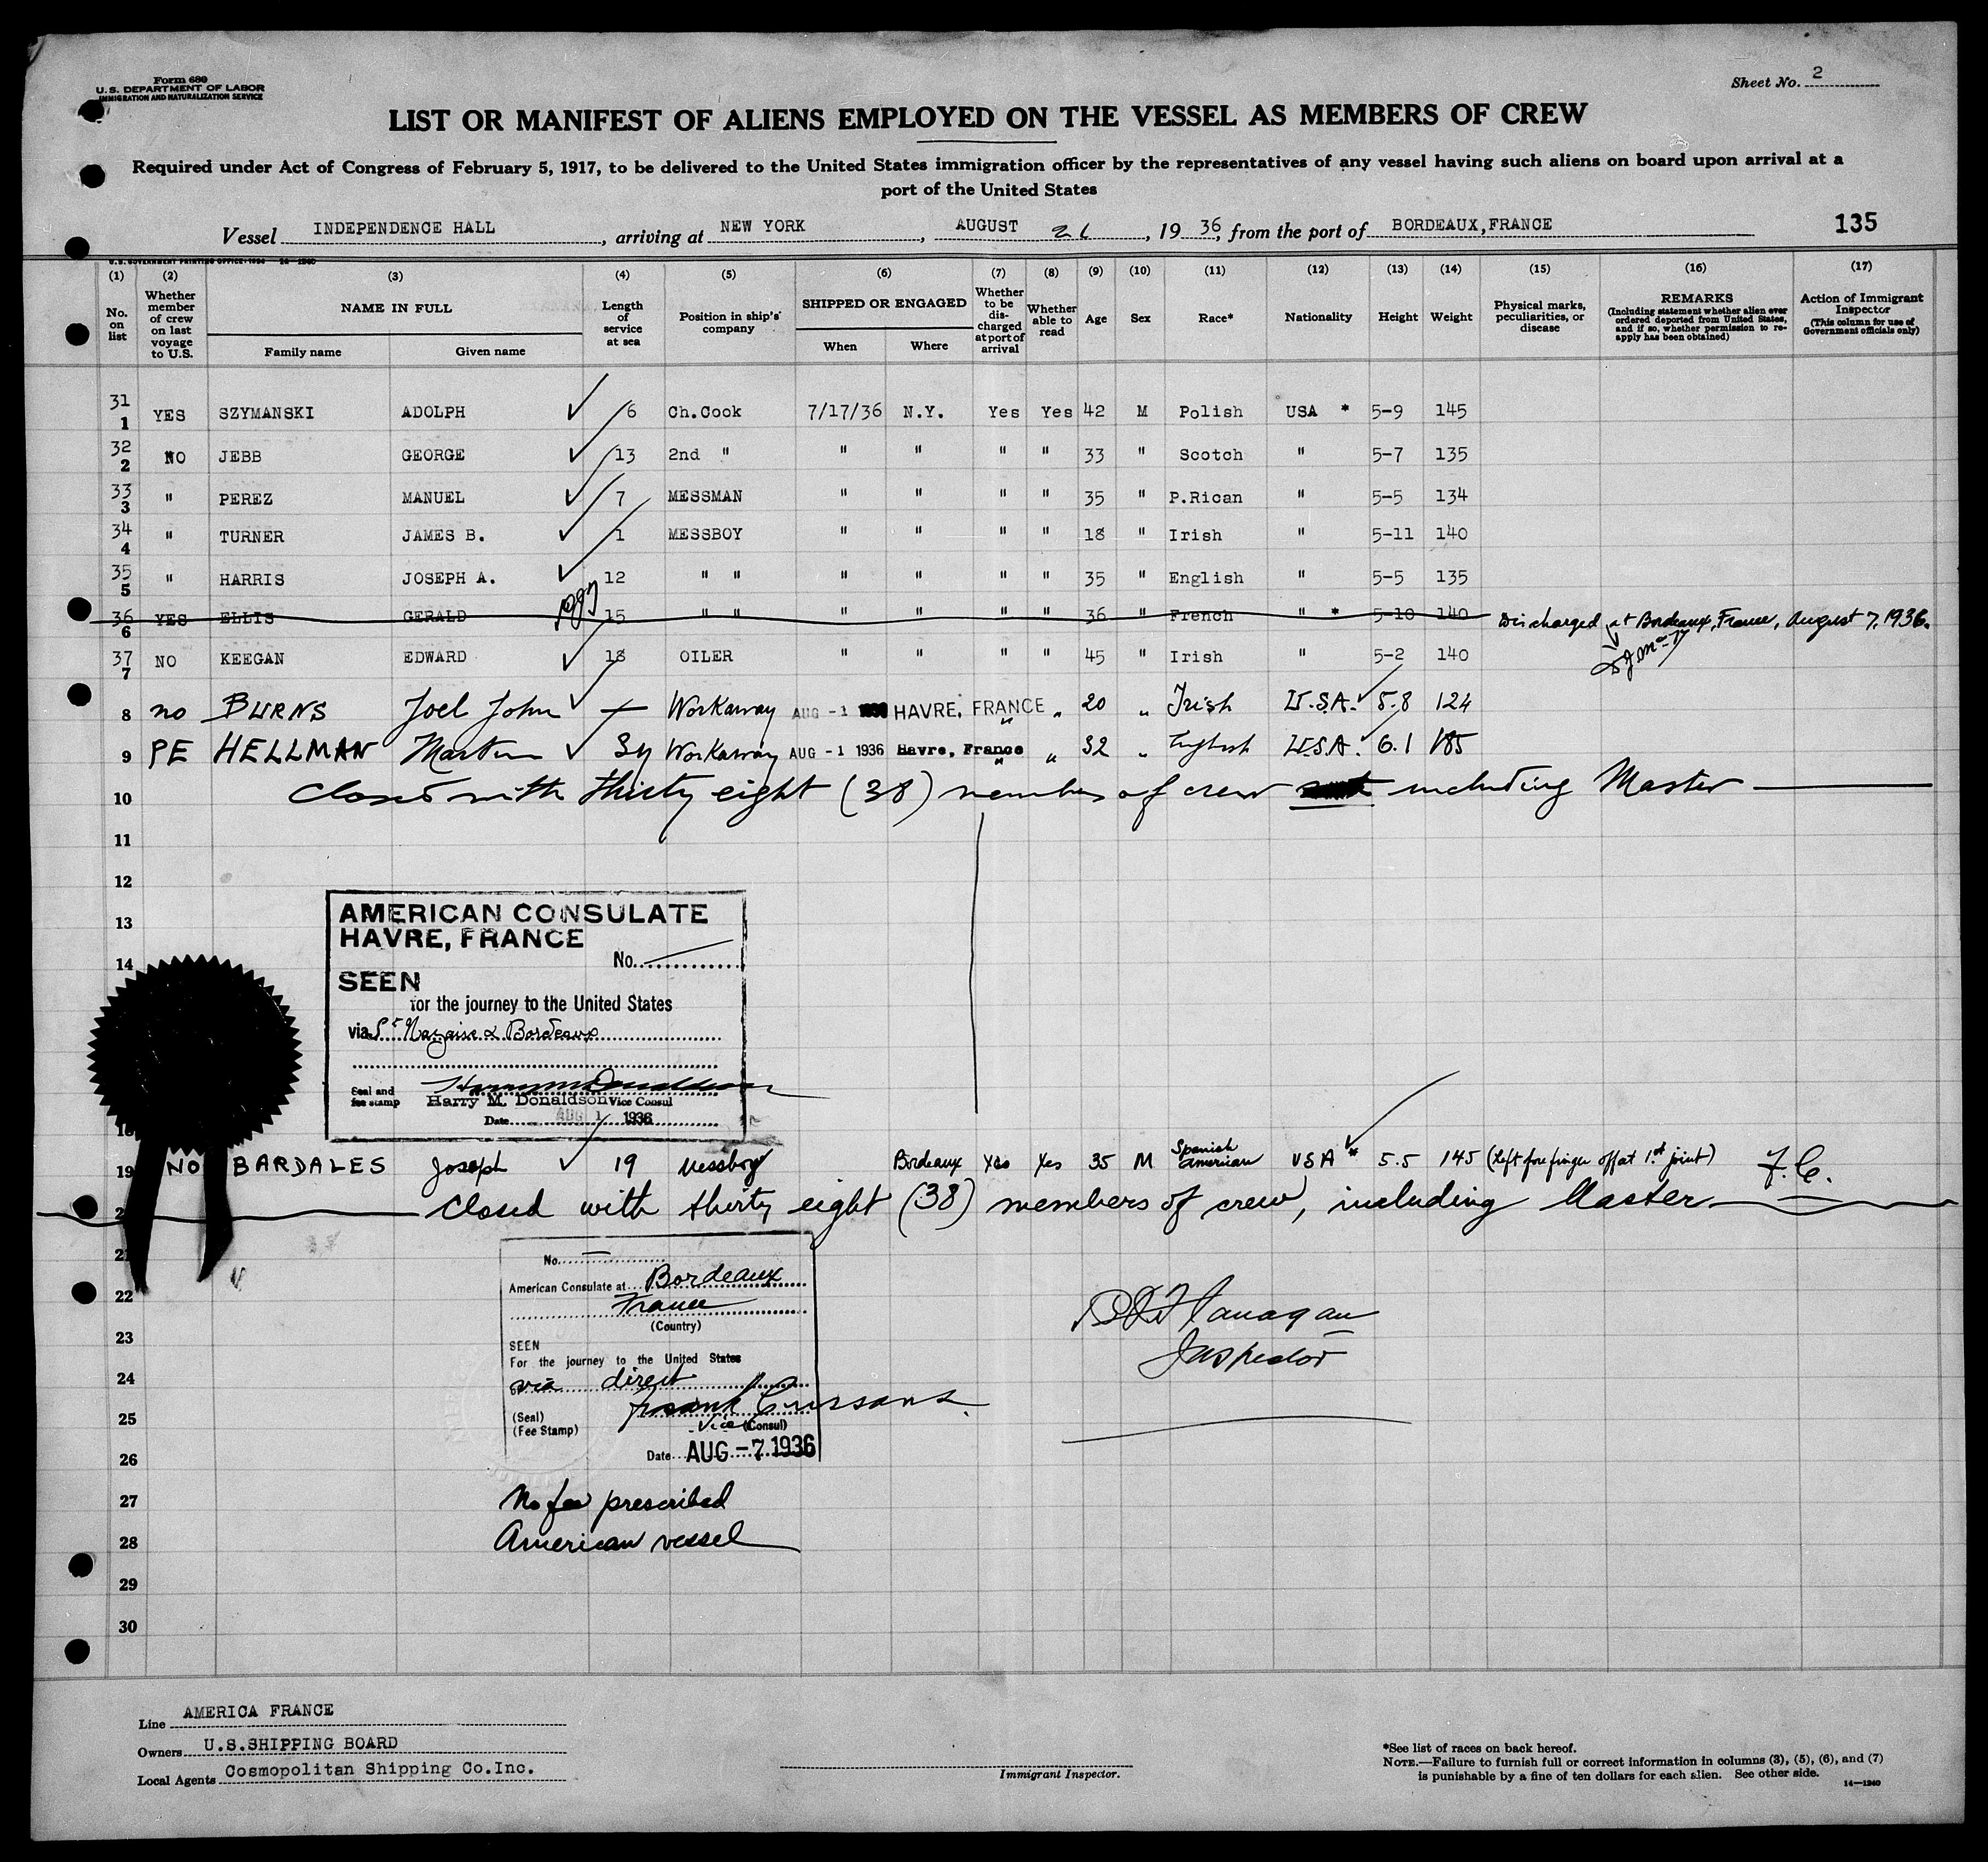 Form 689
U. S. DEPARTMENT OF LABOR
IMMIGRATION AND NATURALIZATION SERVICE
Sheet No. 2
LIST OR MANIFEST OF ALIENS EMPLOYED ON THE VESSEL AS MEMBERS OF CREW
Required under Act of Congress of February 5, 1917, to be delivered to the United States immigration officer by the representatives of any vessel having such aliens on board upon arrival at a
port of the United States
Vessel INDEPENDENCE HALL, arriving at NEW YORK, AUGUST 21, 19 36, from the port of BORDEAUX,FRANCE 135
(1) (2) (3) (4) (5) (6) (7) (8) (9) (10) (11) (12) (13) (14) (15) (16) (17)
No. on list
Whether member of crew on last voyage to U.S.
NAME IN FULL
Family name Given name
Length of service at sea
Position in ship's company
SHIPPED OR ENGAGED
When Where
Whether to be discharged at port of arrival
Whether able to read
Age
Sex
Race*
Nationality
Height
Weight
Physical marks, peculiarities, or disease
REMARKS
(Including statement whether alien ever ordered deported from United States, and if so, whether permission to reapply has been obtained)
Action of Immigrant Inspector
(This column for use of Government officials only)
31 1 YES SZYMANSKI ADOLPH 6 Ch.Cook 7/17/36 N.Y. Yes Yes 42 M Polish USA * 5-9 145
32 2 NO JEBB GEORGE 13 2nd " " " " " 33 " Scotch " 5-7 135
33 3 " PEREZ MANUEL 7 MESSMAN " " " " 35 " P.Rican " 5-5 134
34 4 " TURNER JAMES B. 1 MESSBOY " " " " 18 " Irish " 5-11 140
35 5 " HARRIS JOSEPH A. 12 " " " " " " 35 " English " 5-5 135
36 6 YES ELLIS GERALD 15 " " " " " " 36 " French " * 5-10 140 Discharged at Bordeaux, France, August 7, 1936.
37 7 NO KEEGAN EDWARD 18 OILER " " " " 45 " Irish " 5-2 140
8 no BURNS Joel John Workaway AUG -1 HAVRE, FRANCE " " 20 " Irish U.S.A. 5.8 124
9 PE HELLMAN Martin 3y Workaway AUG -1 1936 Havre, France " " 32 " English U.S.A. 6.1 185
10 Closed with thirty eight (38) members of crew including Master
11
12
13
14
AMERICAN CONSULATE
HAVRE, FRANCE
No.
SEEN
for the journey to the United States
via St Nazaire & Bordeaux
Seal and fee stamp
Harry M. Donaldson Vice Consul
Date AUG 1 1936
18
19 NO BARDALES Joseph 19 Messboy Bordeaux Yes Yes 35 M Spanish American USA * 5.5 145 (Left forefinger off at 1st joint) F.C.
Closed with thirty eight (38) members of crew, including Master
21
22
23
24
25
26
27
28
29
30
No.
American Consulate at Bordeaux
France
(Country)
SEEN
For the journey to the United States
via direct
(Seal)
(Fee Stamp)
Vice (Consul)
Date AUG -7 1936
Flanagan
Inspector
No fee prescribed
American vessel
Line AMERICA FRANCE
Owners U.S.SHIPPING BOARD
Local Agents Cosmopolitan Shipping Co.Inc.
Immigrant Inspector.
*See list of races on back hereof.
NOTE.—Failure to furnish full or correct information in columns (3), (5), (6), and (7)
is punishable by a fine of ten dollars for each alien. See other side.
14—1240